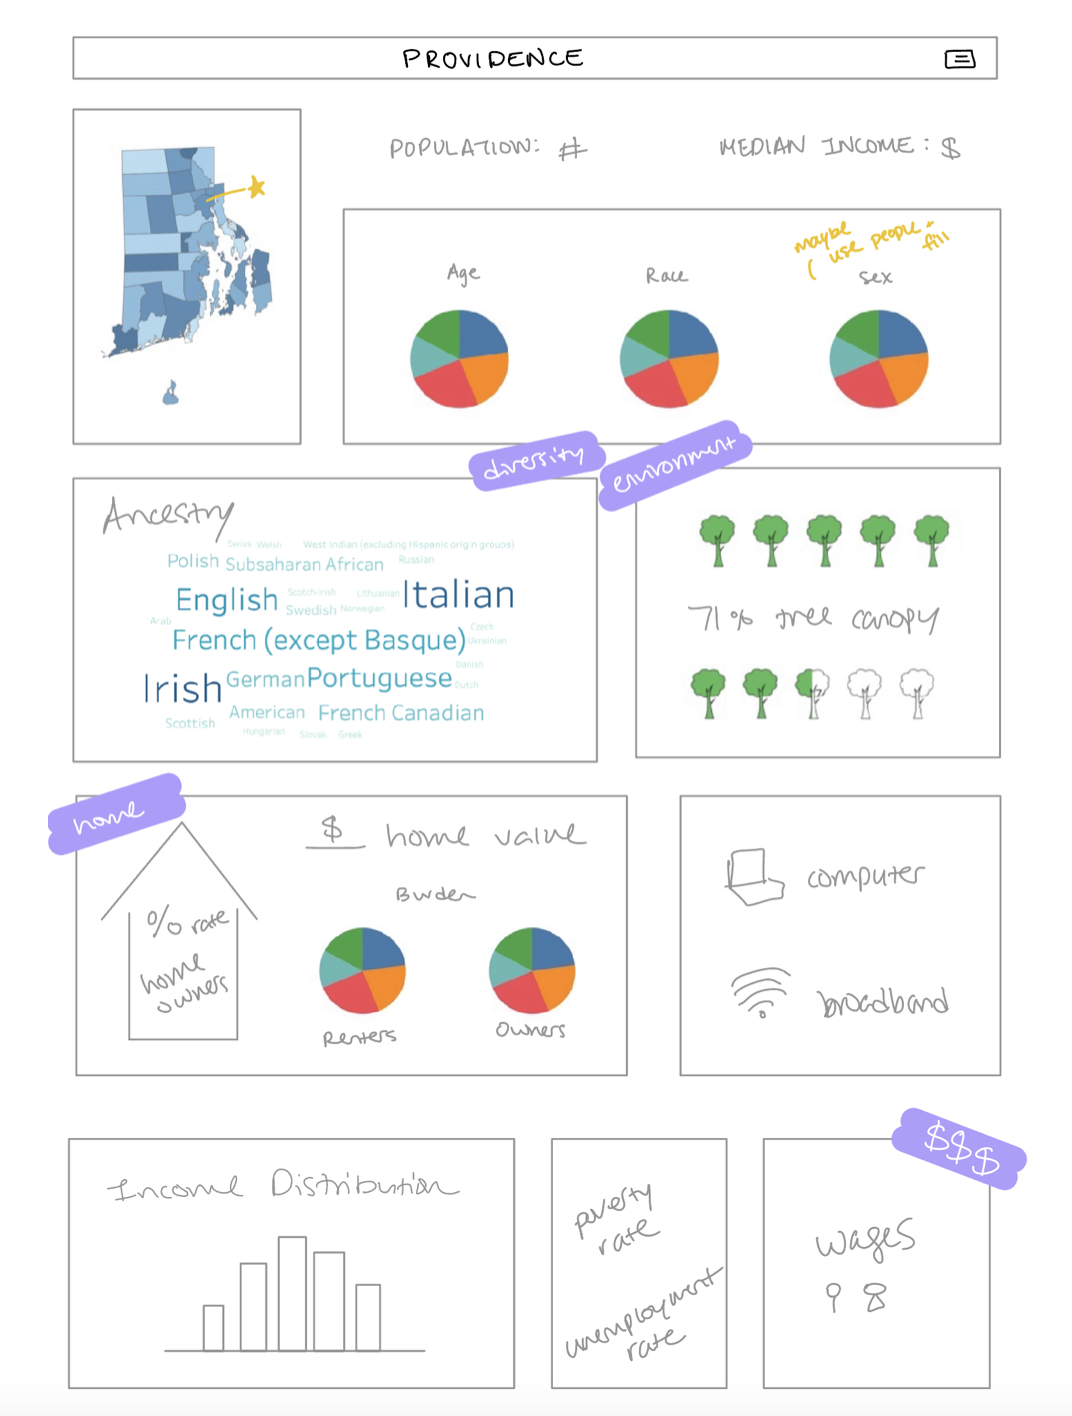 PROVIDENCE
POPULATION: #
MEDIAN INCOME: $
maybe
use people +
fill
Age
Race
sex
diversity
environment
Ancestry
Swiss Welsh West Indian (excluding Hispanic origin groups)
Polish Subsaharan African Russian
English Scotch-Irish Lithuanian Italian
Swedish Norwegian
Arab
French (except Basque) Czech
Ukrainian
Danish
Irish German Portuguese Dutch
American French Canadian
Scottish
Hungarian Slovak Greek
71% tree canopy
home
$ home value
Burden
% rate
home
owners
Renters
Owners
computer
broadband
$$$
Income Distribution
poverty
rate
unemployment
rate
wages